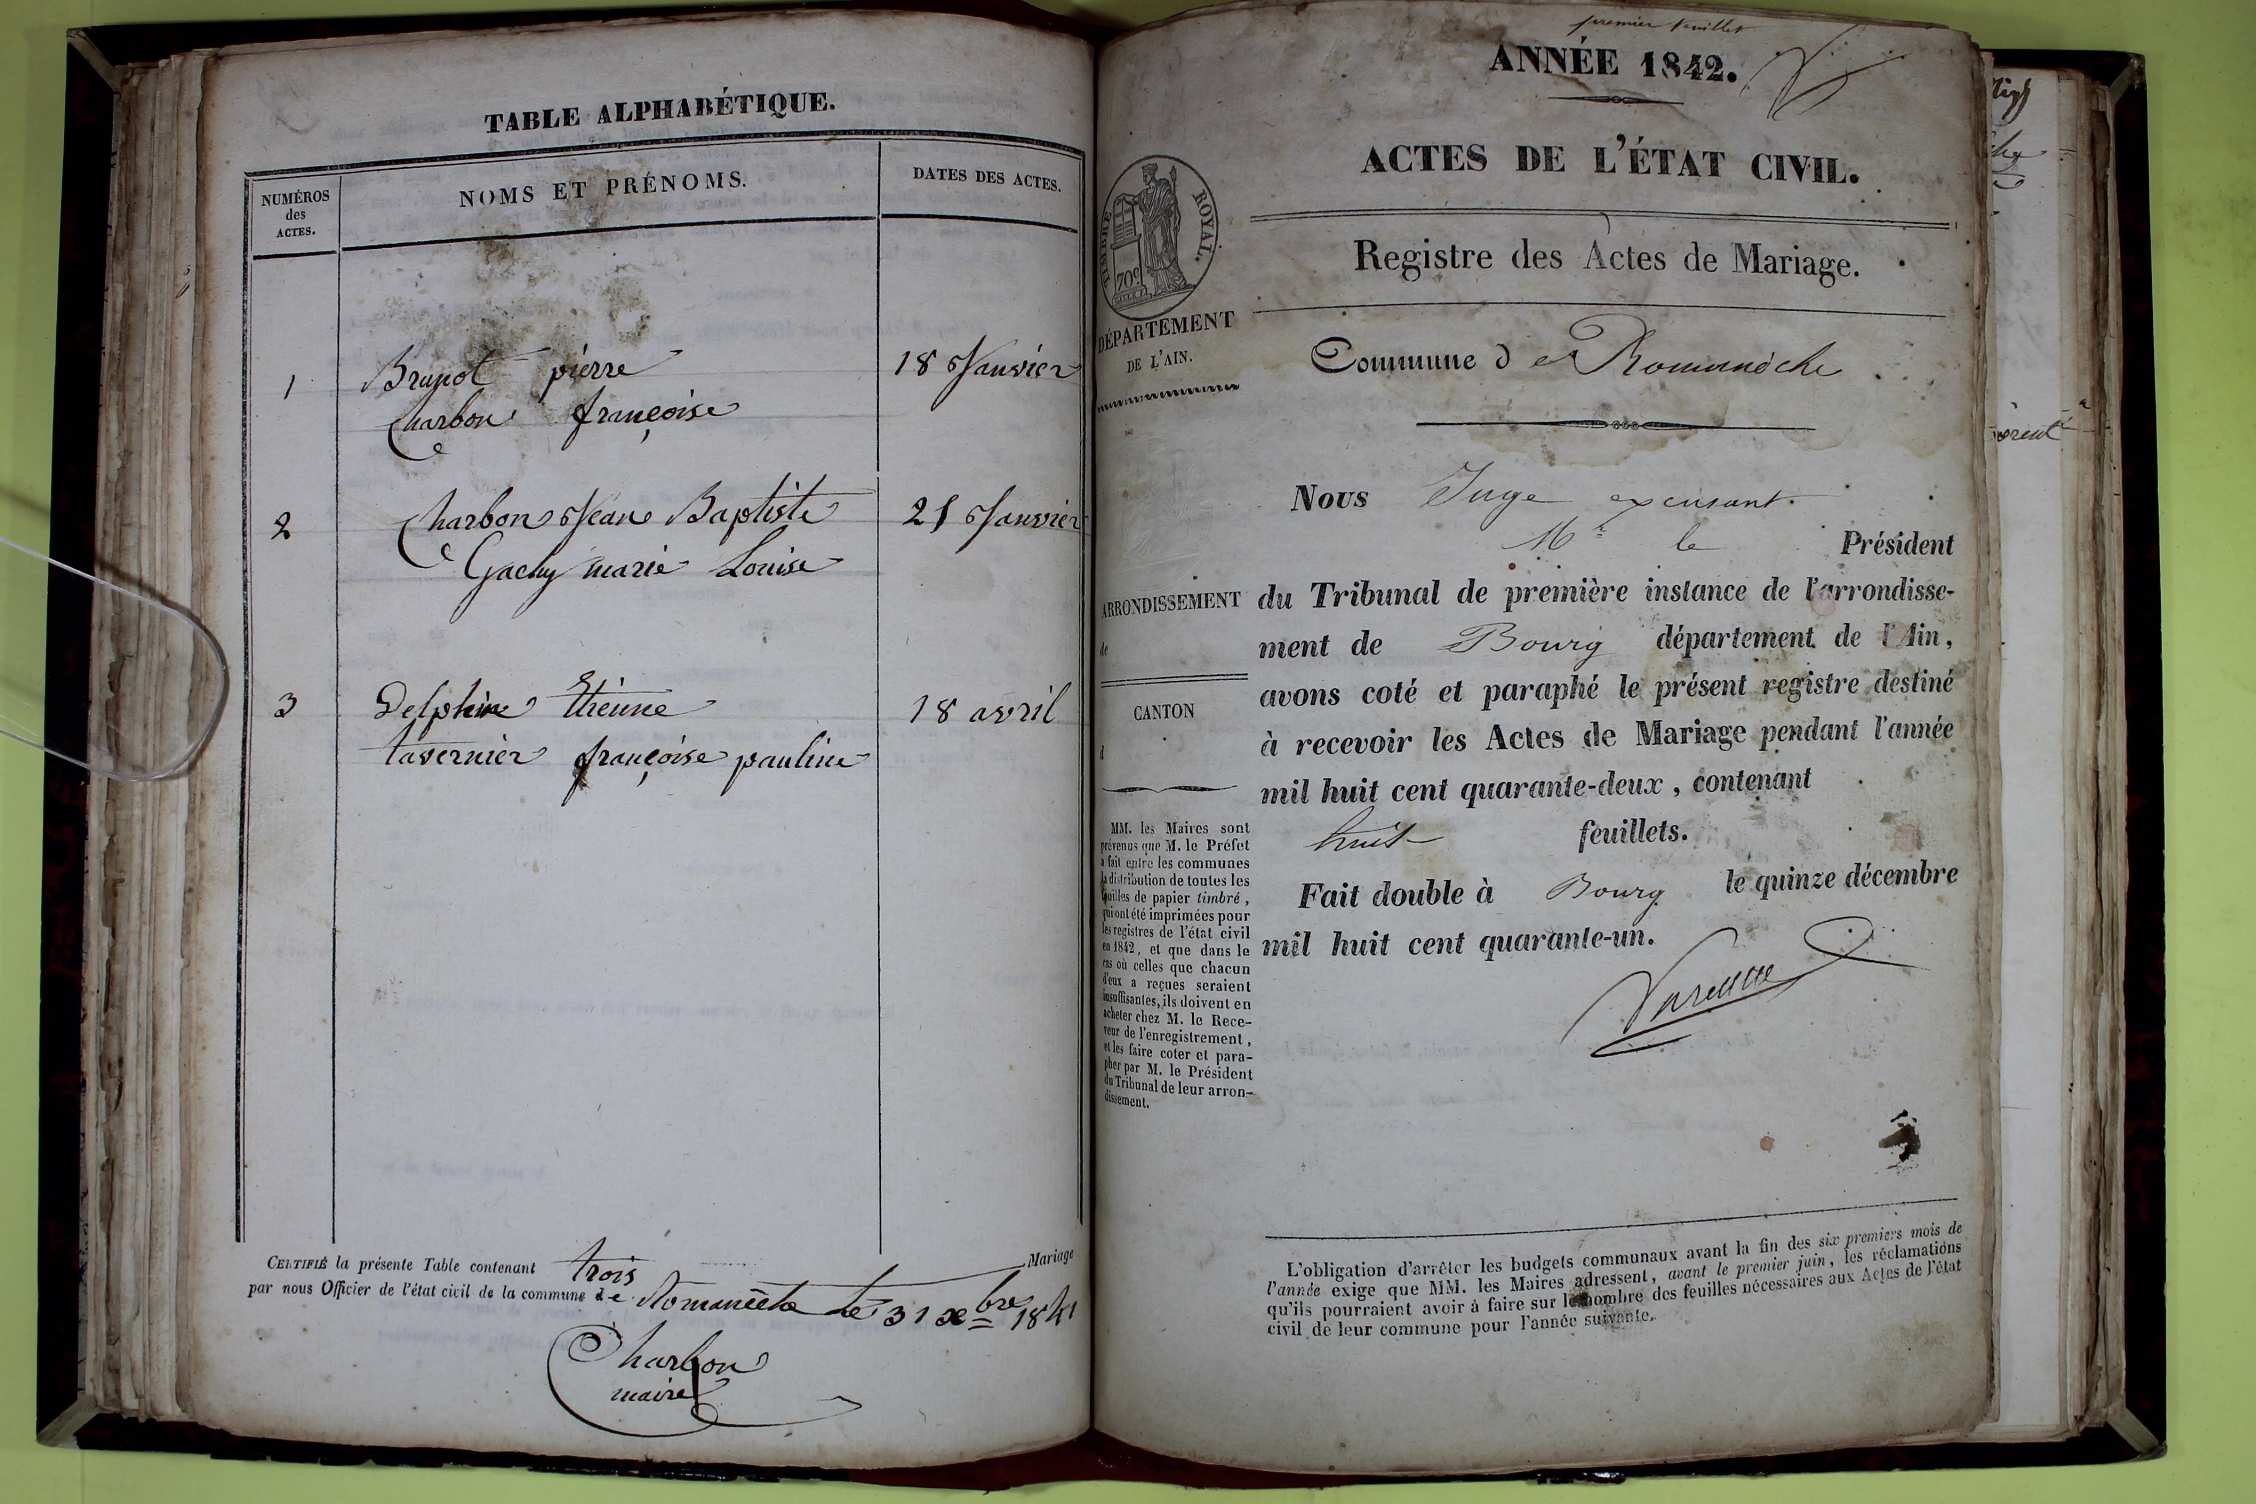 TABLE ALPHABÉTIQUE.
NUMÉROS
des
ACTES.
NOMS ET PRÉNOMS.
DATES DES ACTES.
1 Brunot pierre 18 Janvier
Charbon françoise
2 Charbon Jean Baptiste 21 Janvier
Gachy marie Louise
3 Delphin Etienne 18 avril
tavernier françoise pauline
CERTIFIÉ la présente Table contenant trois Mariage
par nous Officier de l'état civil de la commune de Romanèche le 31 xbre 1841
Charbon
maire
premier feuillet
ANNÉE 1842.
ACTES DE L'ÉTAT CIVIL.
TIMBRE ROYAL.
70c
Registre des Actes de Mariage.
DÉPARTEMENT
DE L'AIN.
Commune de Romanèche
Nous Juge excusant
Mr le Président
du Tribunal de première instance de l'arrondisse-
ment de Bourg département de l'Ain,
avons coté et paraphé le présent registre destiné
à recevoir les Actes de Mariage pendant l'année
mil huit cent quarante-deux, contenant
huit feuillets.
Fait double à Bourg le quinze décembre
mil huit cent quarante-un.
ARRONDISSEMENT
de
CANTON
d
MM. les Maires sont
prévenus que M. le Préfet
a fait entre les communes
la distribution de toutes les
feuilles de papier timbré,
qui ont été imprimées pour
les registres de l'état civil
en 1842, et que dans le
cas où celles que chacun
d'eux a reçues seraient
insuffisantes, ils doivent en
acheter chez M. le Rece-
veur de l'enregistrement,
et les faire coter et para-
pher par M. le Président
du Tribunal de leur arron-
dissement.
L'obligation d'arrêter les budgets communaux avant la fin des six premiers mois de
l'année exige que MM. les Maires adressent, avant le premier juin, les réclamations
qu'ils pourraient avoir à faire sur le nombre des feuilles nécessaires aux Actes de l'état
civil de leur commune pour l'année suivante.